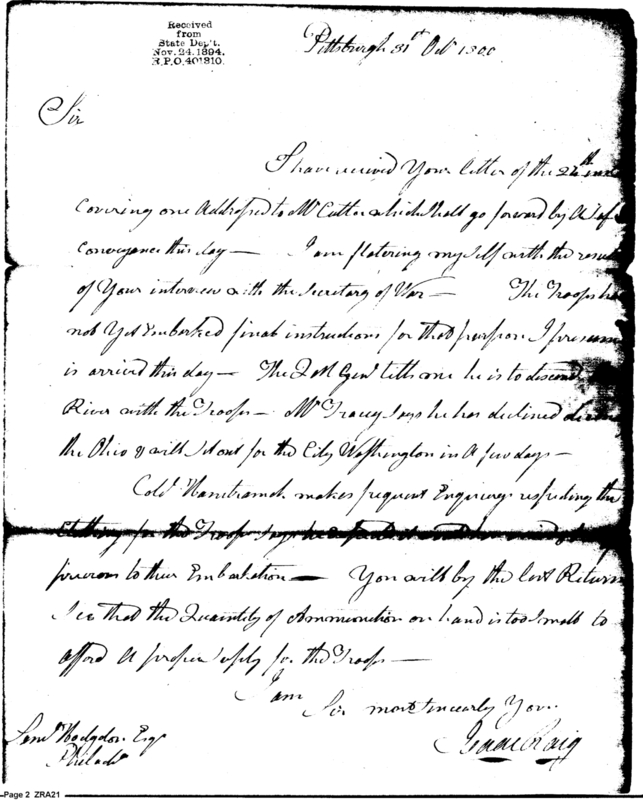 Received
from
State Dep't.
Nov. 24. 1894.
R.P.O. 401810.
Pittsburgh 31st Octr 1800
Sir
I have received Your letter of the 24th
covering one Addressed to Mr Cutter which shall go forward by A safe
conveyance this day — I am flatering my self with the
of Your interview with the Secretary of War — The Troops
not Yet Embarked final instructions for that purpose I presume
is arrived this day — The Q M Genl tells me he is to descend
River with the Troops — Mr Tracey says he has declined
the Ohio & will set out for the City Washington in A few days —
Colo Hamtramck makes frequent Enquireys respecting the
Clothing for the Troops says he
previous to their Embarkation — You will by the last Return
see that the Quantity of Ammunition on hand is too small to
afford A proper suply for the Troops —
I am
Sir most sincerely Yours
Isaac Craig
Saml Hodgdon Esqr
Philada
Page 2 ZRA21